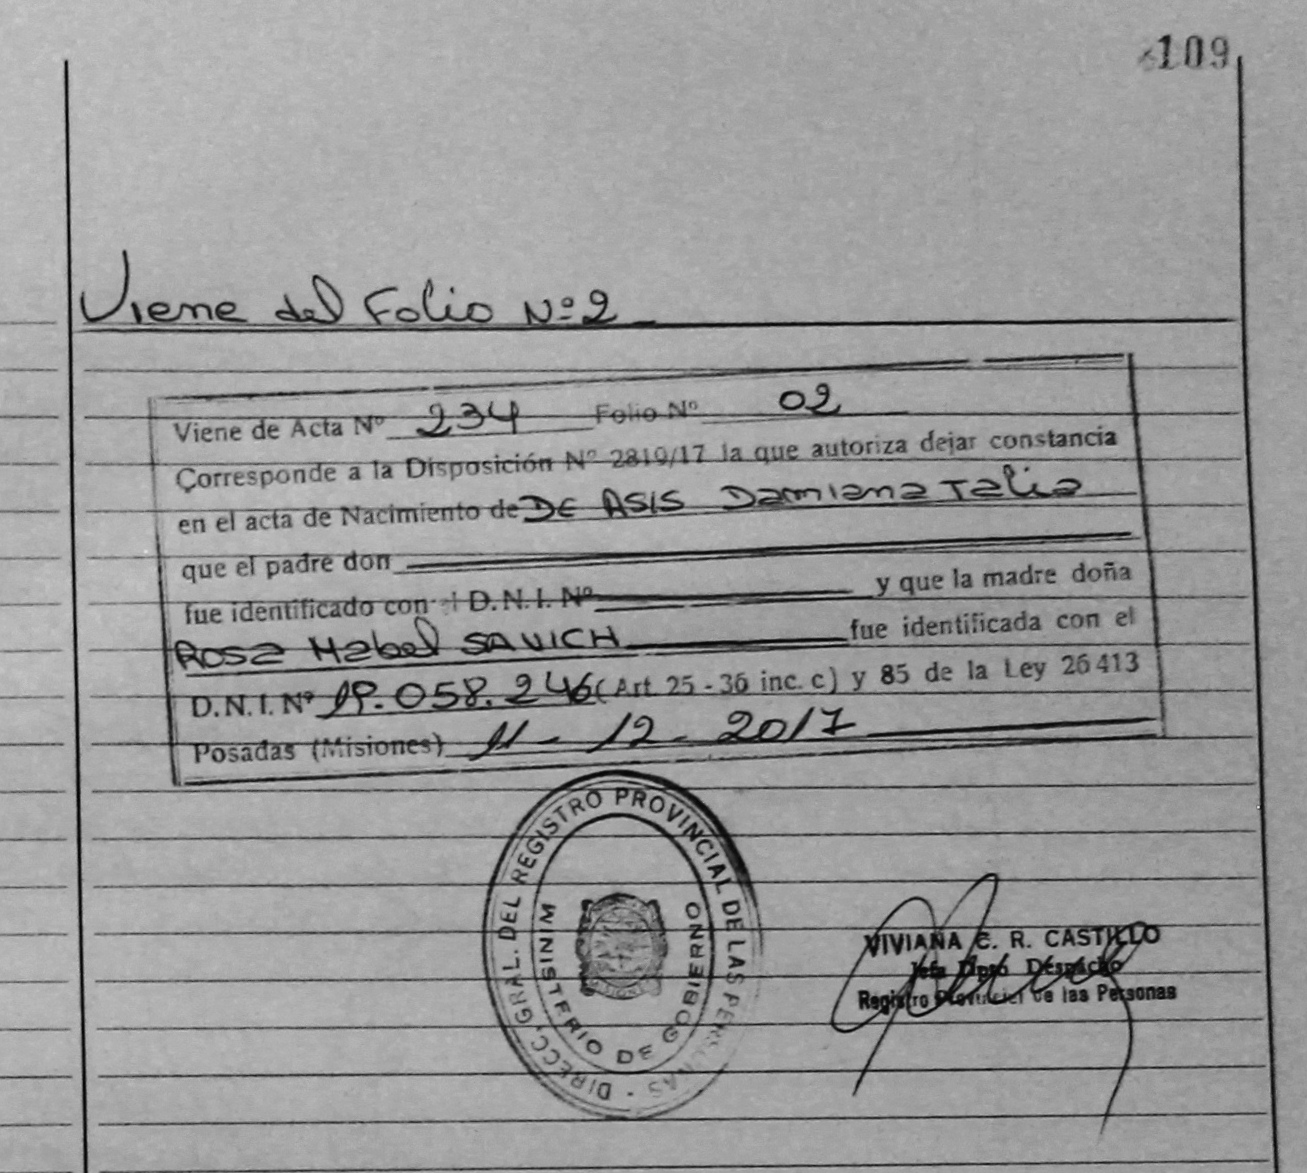 109
Viene del Folio Nº 2
Viene de Acta Nº 234 Folio Nº 02
Corresponde a la Disposición Nº 2810/17 la que autoriza dejar constancia
en el acta de Nacimiento de DE ASIS Damiana Talia
que el padre don
fue identificado con el D.N.I. Nº y que la madre doña
ROSA Mabel SAVICH fue identificada con el
D.N.I. Nº 19.058.246 (Art. 25 - 36 inc. c) y 85 de la Ley 26413
Posadas (Misiones) 11 - 12 - 2017
DIRECC. GRAL. DEL REGISTRO PROVINCIAL DE LAS PERSONAS -
MINISTERIO DE GOBIERNO
VIVIANA C. R. CASTILLO
Jefa Dpto Despacho
Registro Provincial de las Personas